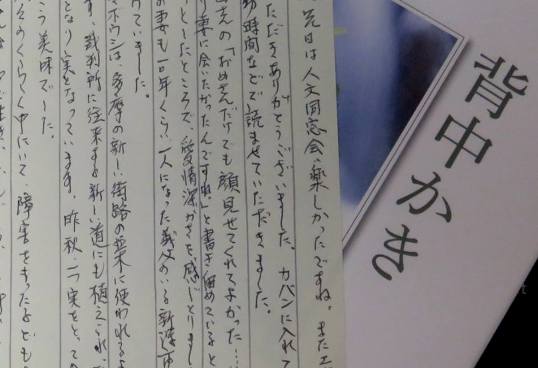 背中かき
先日は人文同窓会、楽しかったですね。また
ただきありがとうございました。カバンに入れて
時間などで読ませていただきました。
さんの「おめさんだけでも顔見せてくれてよかった……
妻に会いたかったんですね」と書き留めていると
としたところで、愛情深かさを感じとりまし
の妻も一年くらい、一人になった義父のいる新潟市
けていました。
ボウシは、多摩の新しい街路の並木に使われるよ
す。裁判所に往来する新しい道にも植えられ、
となり実となっています。昨秋、一つ実をとって
う美味でした。
々のくらしの中にいて、障害をもった子ども